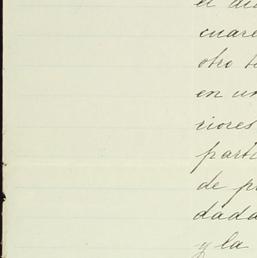 el di
cuare
otro t
en un
riores
parti
de pr
dada
y la